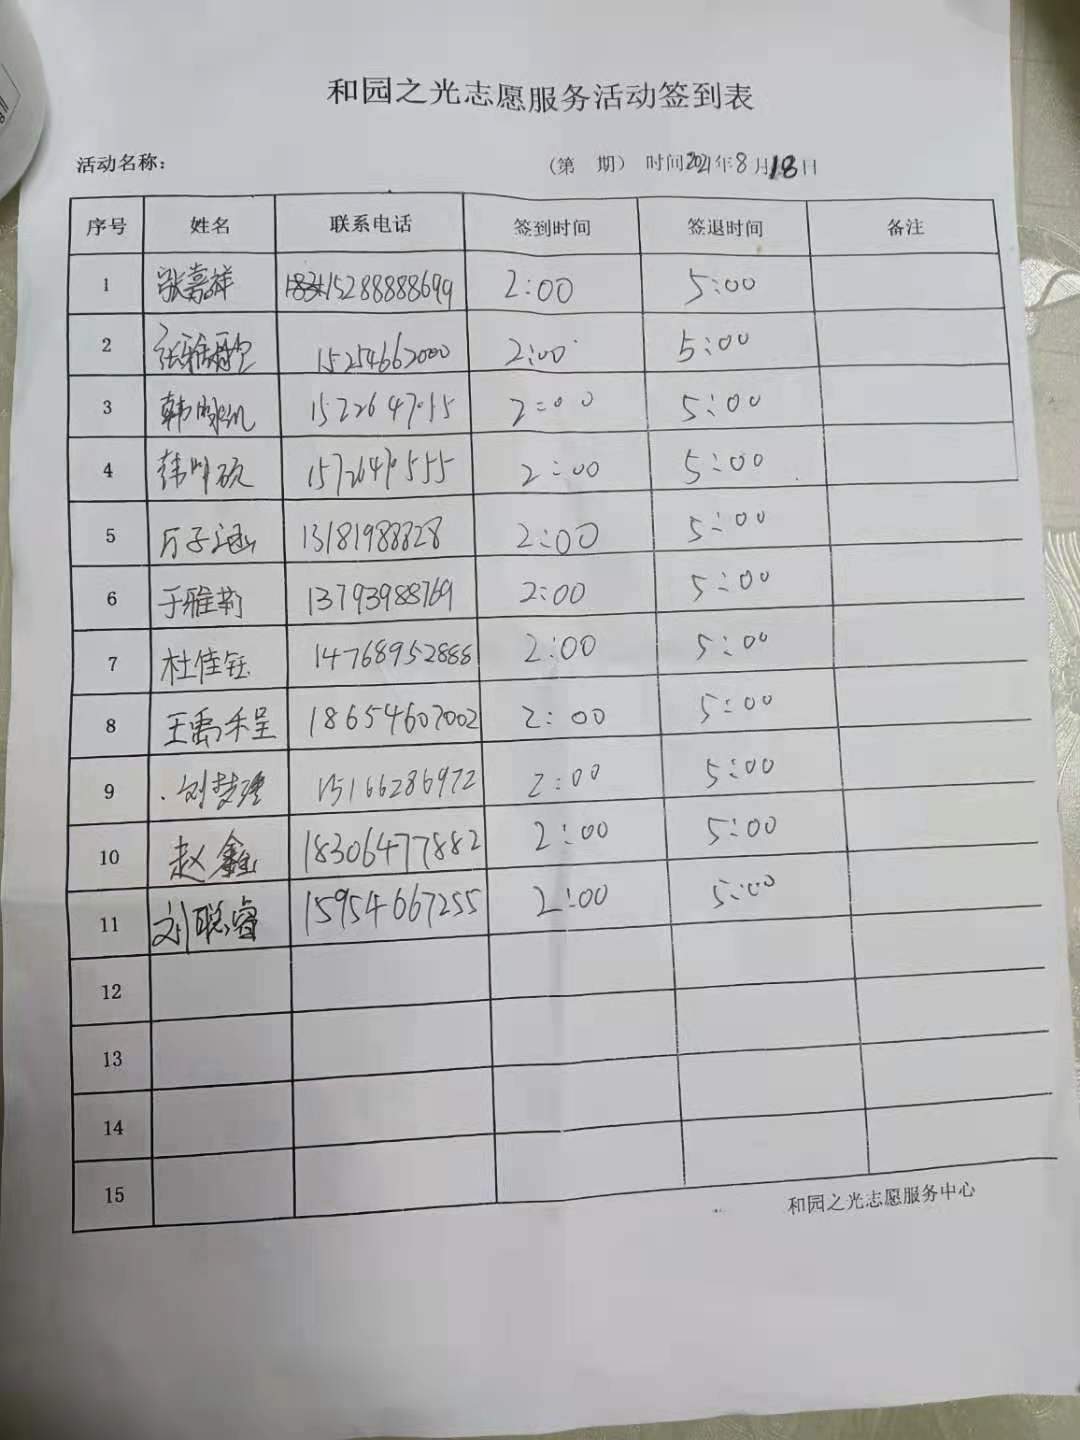 和园之光志愿服务活动签到表
活动名称： （第 期） 时间2021年8月18日
序号 姓名 联系电话 签到时间 签退时间 备注
1 张嘉祥 15288888699 2:00 5:00
2 张雅 15254662000 2:00 5:00
3 韩 2:00 5:00
4 韩 2:00 5:00
5 万子涵 13181988828 2:00 5:00
6 于雅莉 13793988769 2:00 5:00
7 杜佳钰 14768952888 2:00 5:00
8 王禹禾呈 18654607002 2:00 5:00
9 刘梦瑾 15166286972 2:00 5:00
10 赵鑫 18306477882 2:00 5:00
11 刘聪睿 15954667255 2:00 5:00
12
13
14
15
和园之光志愿服务中心